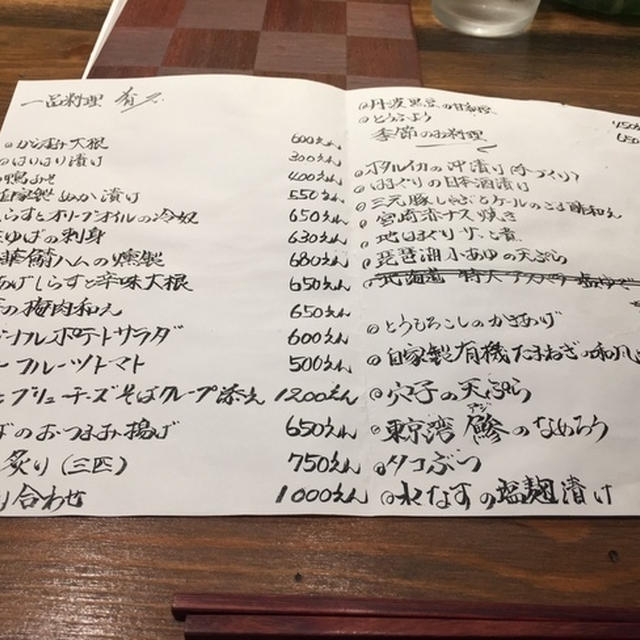 一品料理 肴
からすみ大根 600えん
のはりはり漬け 300えん
400えん
自家製ぬか漬け 550えん
らすとオリーブオイルの冷奴 650えん
ゆばの刺身 630えん
華鯖ハムの燻製 680えん
あげしらすと辛味大根 650えん
の梅肉和え 650えん
フルポテトサラダ 600えん
フルーツトマト 500えん
ブリューチーズそばクレープ添え 1200えん
ばのおつまみ揚げ 650えん
炙り(三匹) 750えん
り合わせ 1000えん
丹波黒豆の
とうふよう
季節のお料理
ホタルイカの沖漬け(手づくり)
はまぐりの日本酒漬け
三元豚しゃぶとケールのごま酢和え
宮崎赤ナス焼き
地はまぐり
琵琶湖小あゆの天ぷら
北海道 特大アスパラ 塩ゆで
とうもろこしのかきあげ
自家製有機たまねぎの和風
穴子の天ぷら
東京湾 鯵のなめろう
アジ
タコぶつ
水なすの塩麹漬け